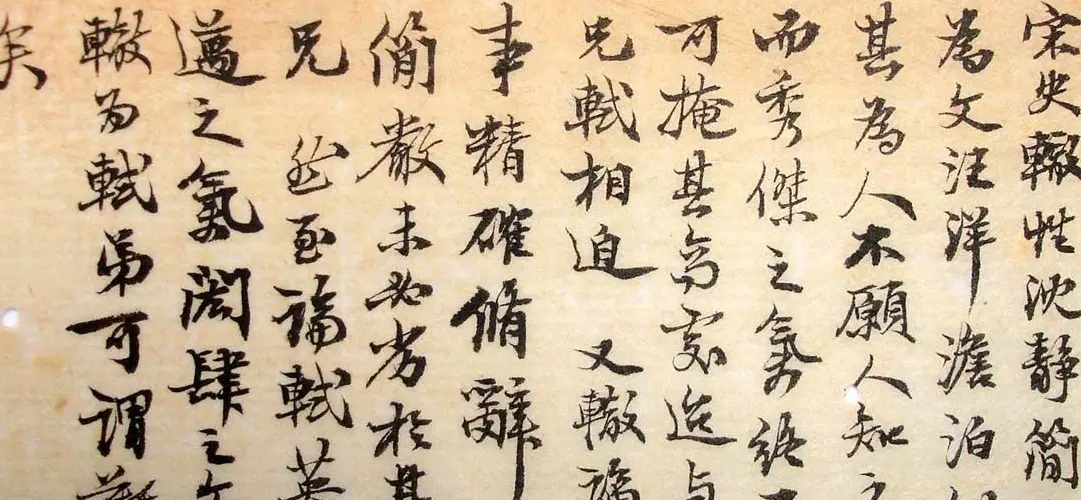 宋史轍性沈静简
為文汪洋澹泊
其為人不願人知之
而秀傑之氣終不
可掩其高處迨与
兄軾相迫 又轍論
事精確脩辭
簡嚴未必劣於其
兄 然至論軾英
邁之氣閎肆之文
轍为軾弟可謂難
矣